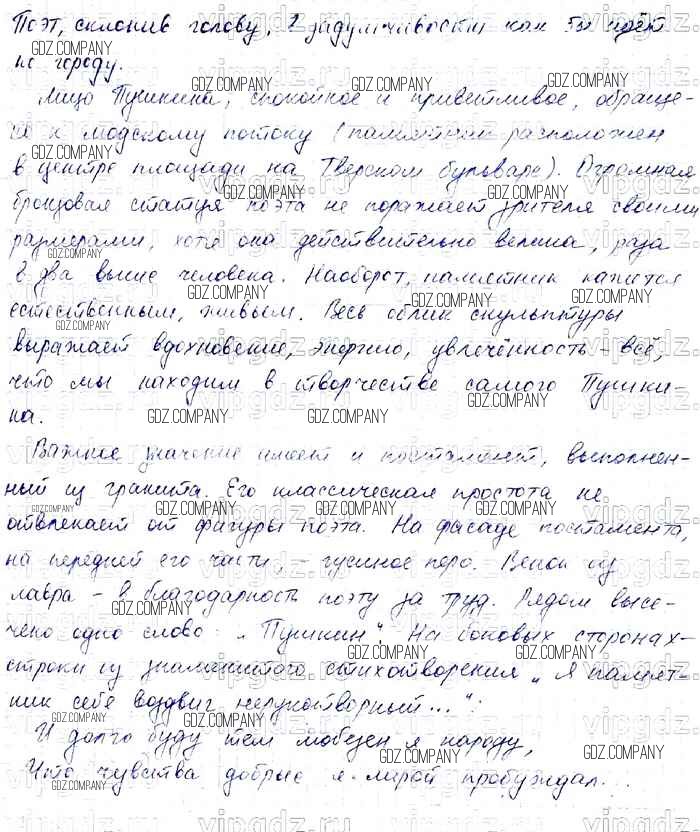 Поэт, склонив голову, в задумчивости как бы идёт
по городу.
Лицо Пушкина, спокойное и приветливое, обраще-
но к людскому потоку (памятник расположен
в центре площади на Тверском бульваре). Огромная
бронзовая статуя поэта не поражает зрителя своими
размерами, хотя она действительно велика, раза
в два выше человека. Наоборот, памятник кажется
естественным, живым. Весь облик скульптуры
выражает вдохновение, энергию, увлечённость – всё,
что мы находим в творчестве самого Пушки-
на.
Важное значение имеет и постамент, выполнен-
ный из гранита. Его классическая простота не
отвлекает от фигуры поэта. На фасаде постамента,
на передней его части, – гусиное перо. Венок из
лавра – в благодарность поэту за труд. Рядом высе-
чено одно слово: „Пушкин". На боковых сторонах-
строки из знаменитого стихотворения „Я памят-
ник себе воздвиг нерукотворный...":
И долго буду тем любезен я народу,
Что чувства добрые я лирой пробуждал...
GDZ.COMPANY
vipgdz.ru